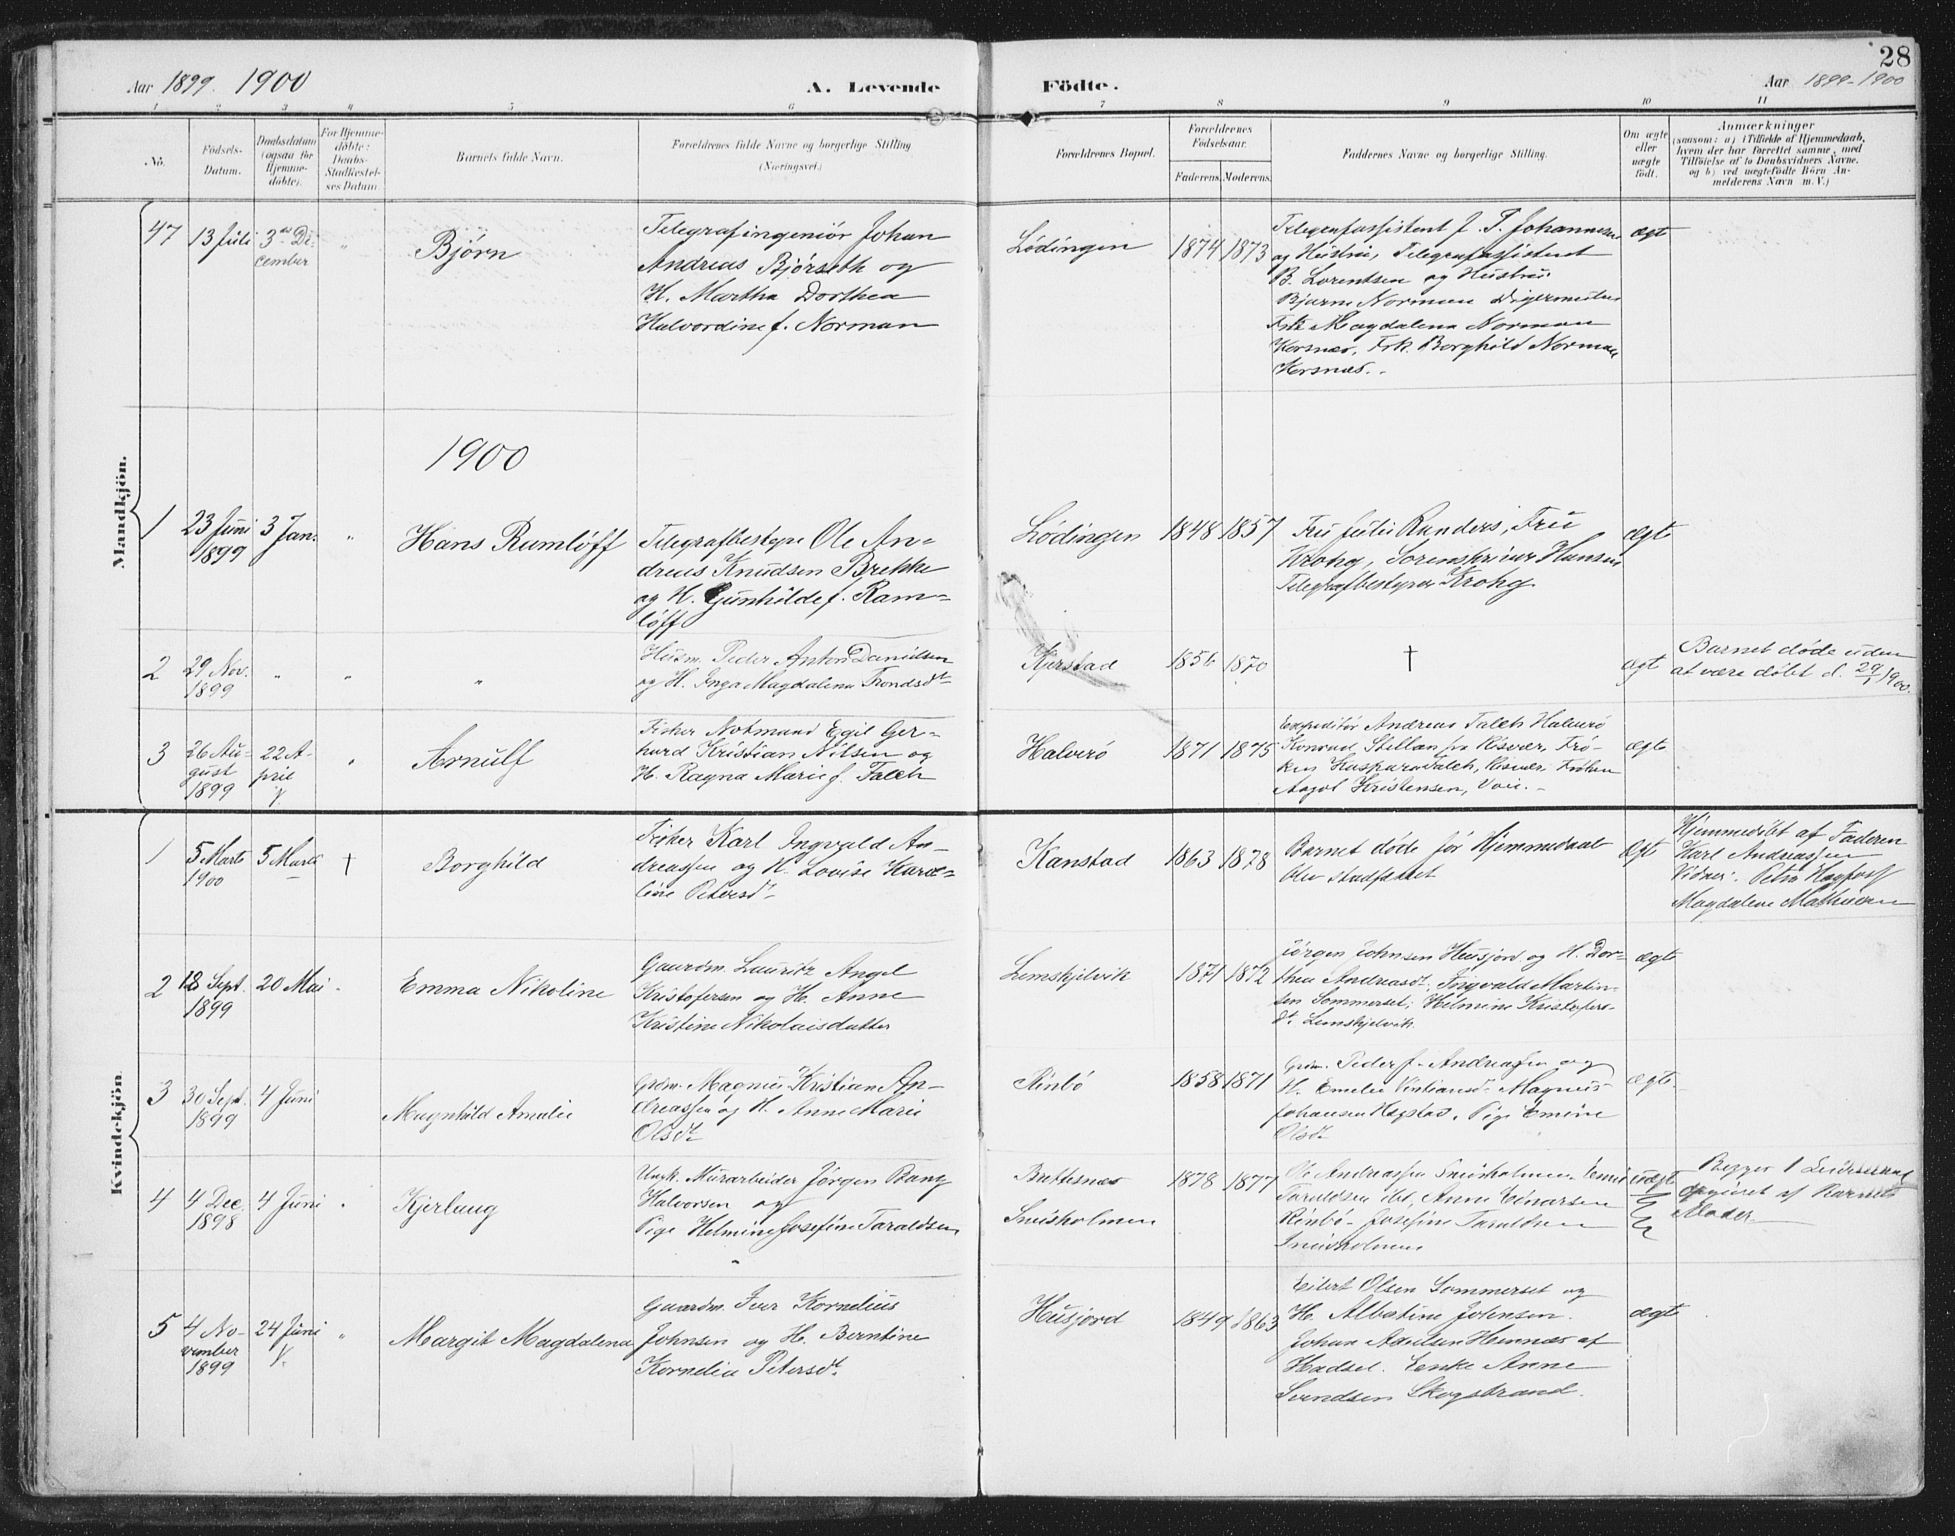 Aar 1899. 1900
A. Levende
Födte.
28
Aar 1899-1900
1 2 3 4 5 6 7 8 9 10 11
No.
Födsels-
Datum.
Daabsdatum
(ogsaa for
Hjemme-
döbte).
For Hjemme-
döbte:
Daabs-
Stadfæstel-
ses Datum
Barnets fulde Navn.
Forældrenes fulde Navne og borgerlige Stilling
(Næringsvei.)
Forældrenes Bopæl.
Forældrenes
Födselsaar.
Faderens. Moderens.
Faddernes Navne og borgerlige Stilling.
Om ægte
eller
uægte
födt.
Anmærkninger
(saasom: a) i Tilfælde af Hjemmedaab,
hvem der har forrettet samme, med
Tilföielse af to Daabsvidners Navne.
og b) ved uægtefödte Börn An-
melderens Navn m. V.)
Mandkjön.
47
13 Juli
3die De-
cember
"
Bjørn
Telegrafingeniør Johan
Andreas Bjørseth og
H. Martha Dorthea
Halvordine f. Norman
Lødingen
1874
1873
Telegrafassistent J. T. Johannesen
og Hustru, Telegrafassistent
B. Lorentsen og Hustru
Bjarne Norman Digermulen
Frk. Magdalena Norman
Korsnæs, Frk. Borghild Norman
Korsnæs.
ægt
1900
1
23 Juni
1899
3 Jan.
"
Hans Rumløff
Telegrafbestyrer Ole An-
dreas Knudsen Brekke
og H. Gunhilde f. Ram-
løff
Lødingen
1848
1857
Fru Julie Randers, Fru
Krohg, Sorenskriver Hansen
Telegrafbestyrer Krohg
Ægt
2
29 Nov.
1899
"
"
"
Husm. Peder Anton Danielsen
og H. Inga Magdalena Trondsdt
Kjerstad
1856
1870
†
Ægt
Barnet døde uden
at være døbt d. 29/1 1900.
3
26 Au-
gust
1899
22 A-
pril
"
Arnulf
Fisker Notmand Egil Ger-
hard Kristian Nilsen og
H. Ragna Marie f. Falch
Halverø
1871
1875
Expeditør Andreas Falch Halverø
Konrad Stellan fra Risvær, Frø-
ken Kaspara Falch, Risvær, Frøken
Aagot Kristensen,
ægte
Kvindekjön
1
5 Marts
1900
5 Marts
†
Borghild
Fisker Karl Ingvald An-
dreassen og H. Lovise Karo-
line Petersdt
Kanstad
1863
1878
Barnet døde før Hjemmedaab
blev stadfæstet
Ægt
Hjemmedøbt af Faderen
Karl Andreassen
Vidner: Petra
Magdalene Mathisen
2
18 Sept.
1899
20 Mai
Emma Nikoline
Gaardm. Lauritz Angel
Kristofersen og H. Anne
Kristine Nikolaisdatter
Lemskjelvik
1871
1872
Jørgen Johnsen Husjord og H. Dor-
thea Andreasdt, Ingvald Martin-
sen Sommerset; Helmine Kristofers-
dt. Lemskjelvik
ægte
3
30 Sept.
1899
4 Juni
Magnhild Amalie
Grdm. Magnus Kristian An-
dreassen og H. Anne Marie
Olsdt
Rinbø
1858
1871
Grdm. Peder f. Andreassen og
H. Emelie Magnus
Johansen Hegstad, Pige Emine
Olsdt
ægte
4
4 Dec.
1898
4 Juni
Kjerlaug
Ungk. Murarbeider Jørgen Bang
Halvorsen og
Pige Helmine Josefine Taraldsen
Buttesnæs
Sneisholmen
1878
1877
Ole Andreassen Sneisholmen,
Taraldsen det, Anne Edvardsen
Rinbø, Josefine Taraldsen
Sneisholmen
uægt
Begges 1
opgivet af Barnets
Moder.
5
4 No-
vember
1899
24 Juni
"
Margit Magdalena
Gaardm. Iver Kornelius
Johnsen og H. Berntine
Kornelia Petersdt.
Husjord
1849
1863
Eilert Olsen Sommerset og
H. Albertine Johnsen.
Johan Hennæs af
Hadsel. Enke Anne
Svendsen Skogstrand.
ægte